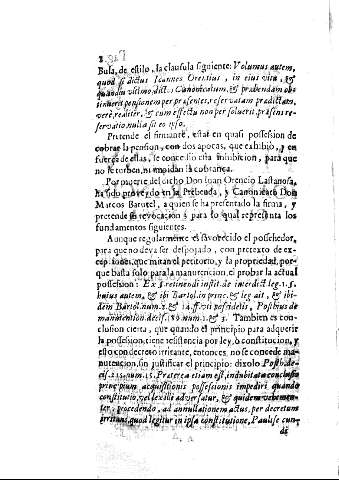 Bula, de estilo, la clausula siguiente: Volumus autem,
quod si dictus Ioannes Orensius, in eius vita, &
quandiu vltimo, dictos Canonicatum, & præbendam ob-
tinuerit pensionem per præsentes reservatam prædictam,
verè, realiter, & cum effectu non per soluerit, præsens re-
servatio nulla sit eo ipso.
Pretende el firmante, estar en quasi possession de
cobrar la pension, con dos apocas, que exhibiò, y en
fuerça de ellas, se concediò esta inhibicion, para que
no le turben, ni impidan la cobrança.
Por muerte del dicho Don Iuan Orencio Lastanosa,
ha sido proveìdo en la Prebenda, y Canonicato Don
Marcos Barutel, a quien se ha presentado la firma, y
pretende su revocacion; para lo qual representa los
fundamentos siguientes.
Aunque regularmente es favorecido el possehedor,
para que no deva ser despojado, con pretexto de ex-
cepciones, que miran el petitorio, y la propriedad, por-
que basta solo para la manutencion, el probar la actual
possession: Ex §. retinendi instit. de interdict. leg. 1. §.
huius autem, & ibi Bartol. in princ. & leg. ait, & ibi-
dem Bartol. num. 2. & 14. ff. uti possidetis, Posthius de
manutention. decis. 189. num. 1. & 3. Tambien es con-
clusion cierta, que quando el principio para adquerir
la possession, tiene resistencia por ley, ò constitucion, y
esto con decreto irritante, entonces, no se concede ma-
nutencion, sin justificar el principio: dixolo Posth. de-
cis. 235. num. 15. Præterea etiam est, indubitata conclusio
principium acquisitionis possessionis impediri, quando
constitutio, vel lex illi adversatur, & quidem vehemen-
ter, procedendo, ad annullationem actus, per decretum
irritans, quod legitur in ipsa constitutione, Paulisse cun-
de